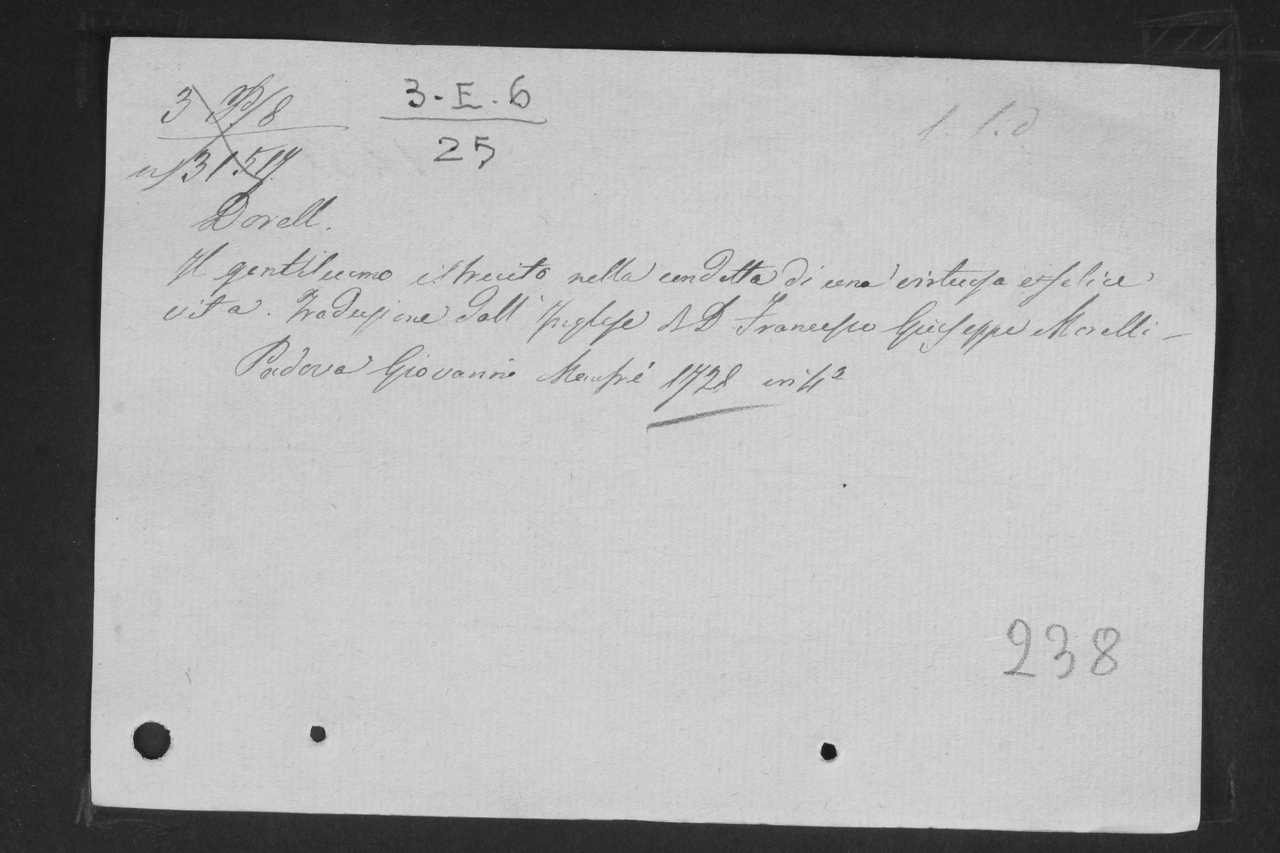 3-E.6
25
Dorell.
Il gentiluomo istruito nella condotta di una virtuosa e felice
vita. Traduzione dall' Inglese di D Francesco Giuseppe Morelli -
Padova Giovanni Manfrè 1728 in 4º
238